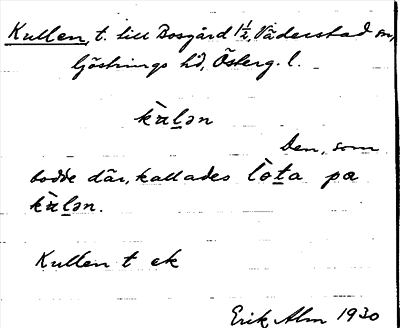 Kullen, t. till Bosgård 1 1/2, Väderstad sn,
Göstrings hd, Österg. l.
kùḻən
Den, som
bodde där, kallades lòt̠a pa
kùḻən.
Kullen t ek
Erik Alm 1930